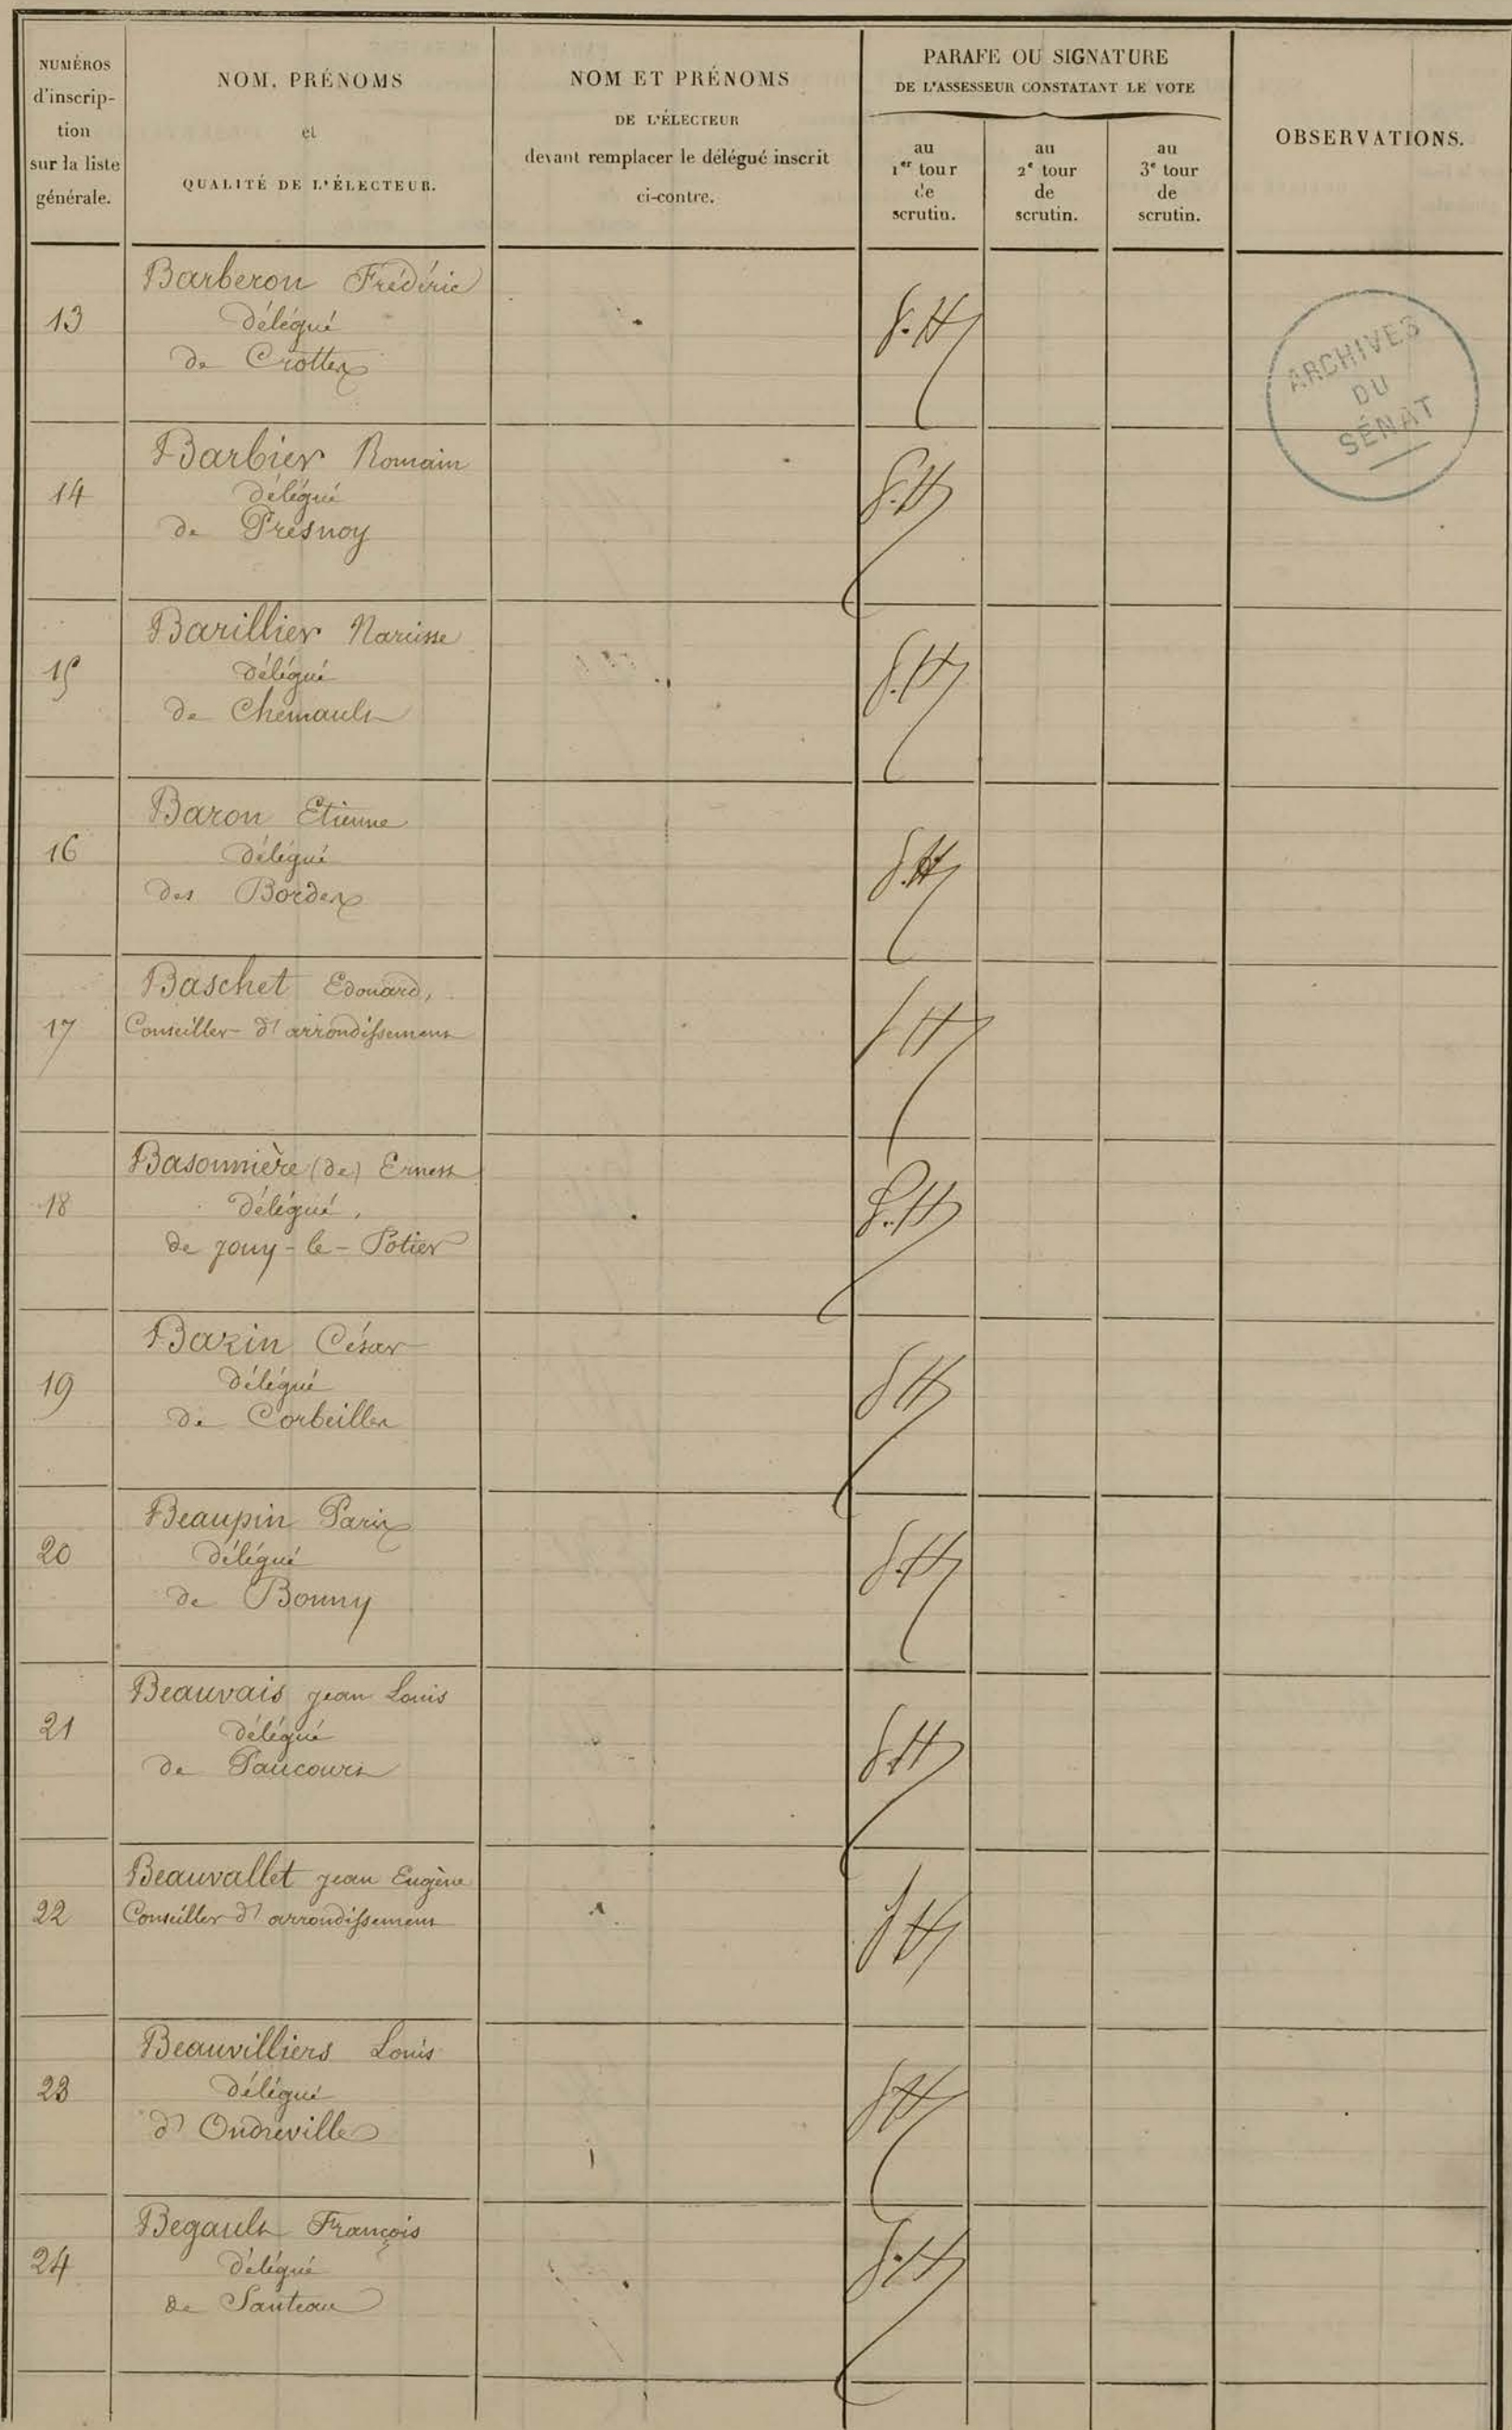 NUMÉROS
d'inscrip-
tion
sur la liste
générale.
NOM, PRÉNOMS
et
QUALITÉ DE L'ÉLECTEUR.
NOM ET PRÉNOMS
DE L'ÉLECTEUR
devant remplacer le délégué inscrit
ci-contre.
PARAFE OU SIGNATURE
DE L'ASSESSEUR CONSTATANT LE VOTE
au
1er tour
de
scrutin.
au
2e tour
de
scrutin.
au
3e tour
de
scrutin.
OBSERVATIONS.
ARCHIVES
DU
SÉNAT
Barberon Frédéric
13 Délégué
de Crottes
Barbier Romain
14 Délégué
de Presnoy
Barillier Narcisse
15 Délégué
de Chemault
Baron Etienne
16 Délégué
des Bordes
Baschet Edouard,
17 Conseiller d'arrondissement
Basonnière (de) Ernest
18 Délégué,
de Jouy-le-Potier
Bazin César
19 Délégué
de Corbeilles
Beaupin Paris
20 Délégué
de Bonny
Beauvais Jean Louis
21 Délégué
de Paucourt
Beauvallet Jean Eugène
22 Conseiller d'arrondissement
Beauvilliers Louis
23 Délégué
d'Ondreville
Begault François
24 Délégué
de Santeau